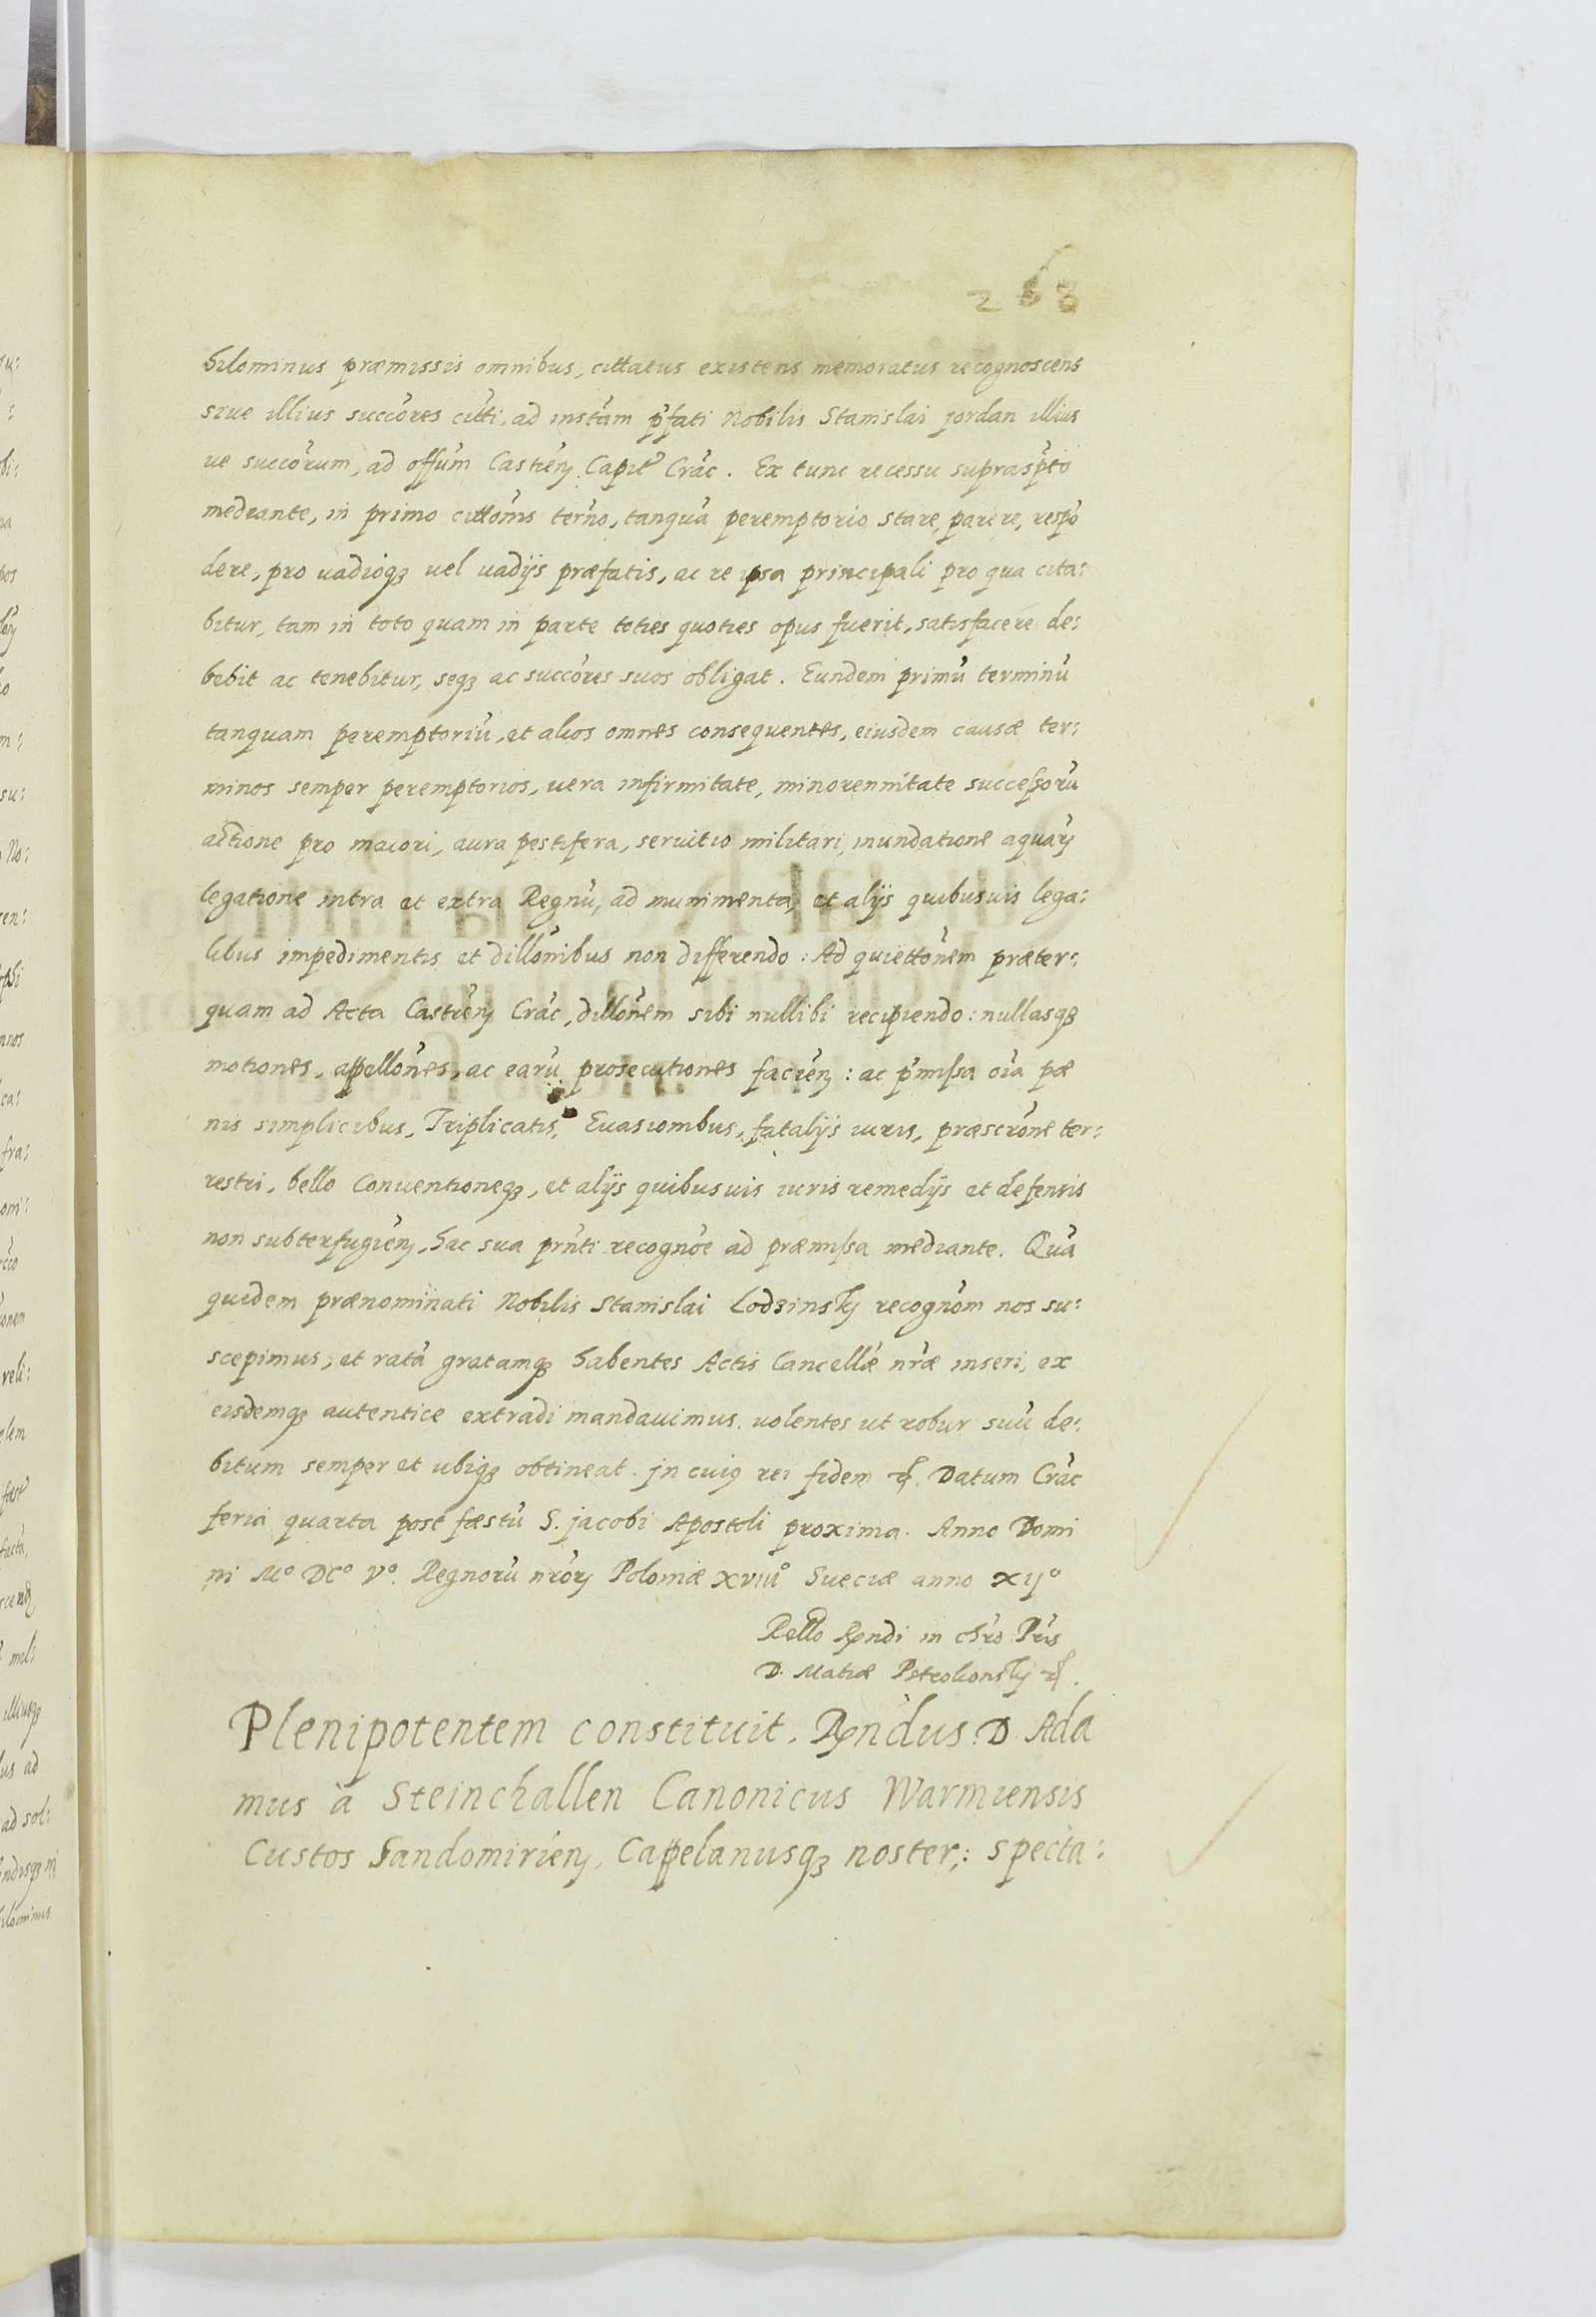 268
hilominus præmissis omnibus, cittatus existens memoratus recognoscens
siue illius succóres citti, ad instãm p̃fati Nobilis Stanislai Jordan illius
ue succórum, ad offũm Castreñ Capit̃ Crac. Ex tunc recessu suprasp̃to
mediante, in primo cittoñis terño, tanquã peremptorio stare, parere, respõ
dere, pro uadioqʒ uel uadijs præfatis, ac re ipsa principali pro qua cita:
bitur, tam in toto quam in parte toties quoties opus fuerit, satisfacere de:
bebit ac tenebitur, seqʒ ac succóres suos obligat. Eundem primũ terminũ
tanquam peremptoriũ, et alios omnes consequentes, eiusdem causæ ter:
minos semper peremptorios, uera infirmitate, minorennitate successorũ
actione pro maiori, aura pestifera, seruitio militari, inundatione aquarũ
legatione intra et extra Regnũ, ad munimenta, et alijs quibusuis lega:
libus impedimentis et dillõnibus non differendo: Ad quiettõnem præter:
quam ad Acta Castreñ Crac, dillõnem sibi nullibi recipiendo: nullasqʒ
motiones, appellões, ac earũ prosecutiones facieñ: ac p̃missa oĩa pæ
nis simplicibus, Triplicatis, Euasionibus, fatalijs iuris, præscrõne ter:
restri, bello Conuentioneqʒ, et alijs quibusuis iuris remedijs et defensis
non subterfugieñ, hac sua pr̃nti recognõe ad præmissa mediante. Quã
quidem prænominati Nobilis Stanislai Lodzinsky recognõm nos su:
scepimus, et ratã gratamqʒ habentes Actis Cancellæ nr̃æ inseri, ex
eisdemqʒ autentice extradi mandauimus. uolentes ut robur suũ de:
bitum semper et ubiqʒ obtineat. Jn cuiꝰ rei fidem ꝛc̃. Datum Crac
feria quarta post fæstũ S. Jacobi Apostoli proxima. Anno Domi
ni Mº DCº Vº. Regnorũ nr̃orũ Poloniæ XVIIIº Sueciæ anno XIJº
Rello Rndi in chr̃o Pr̃is
D. Matiæ Petrokonsky ꝛc̃.
Plenipotentem constituit, Rndus D. Ada
mus à Steinchallen Canonicus Warmiensis
Custos Sandomirieñ, Capelanusqʒ noster,: specta: